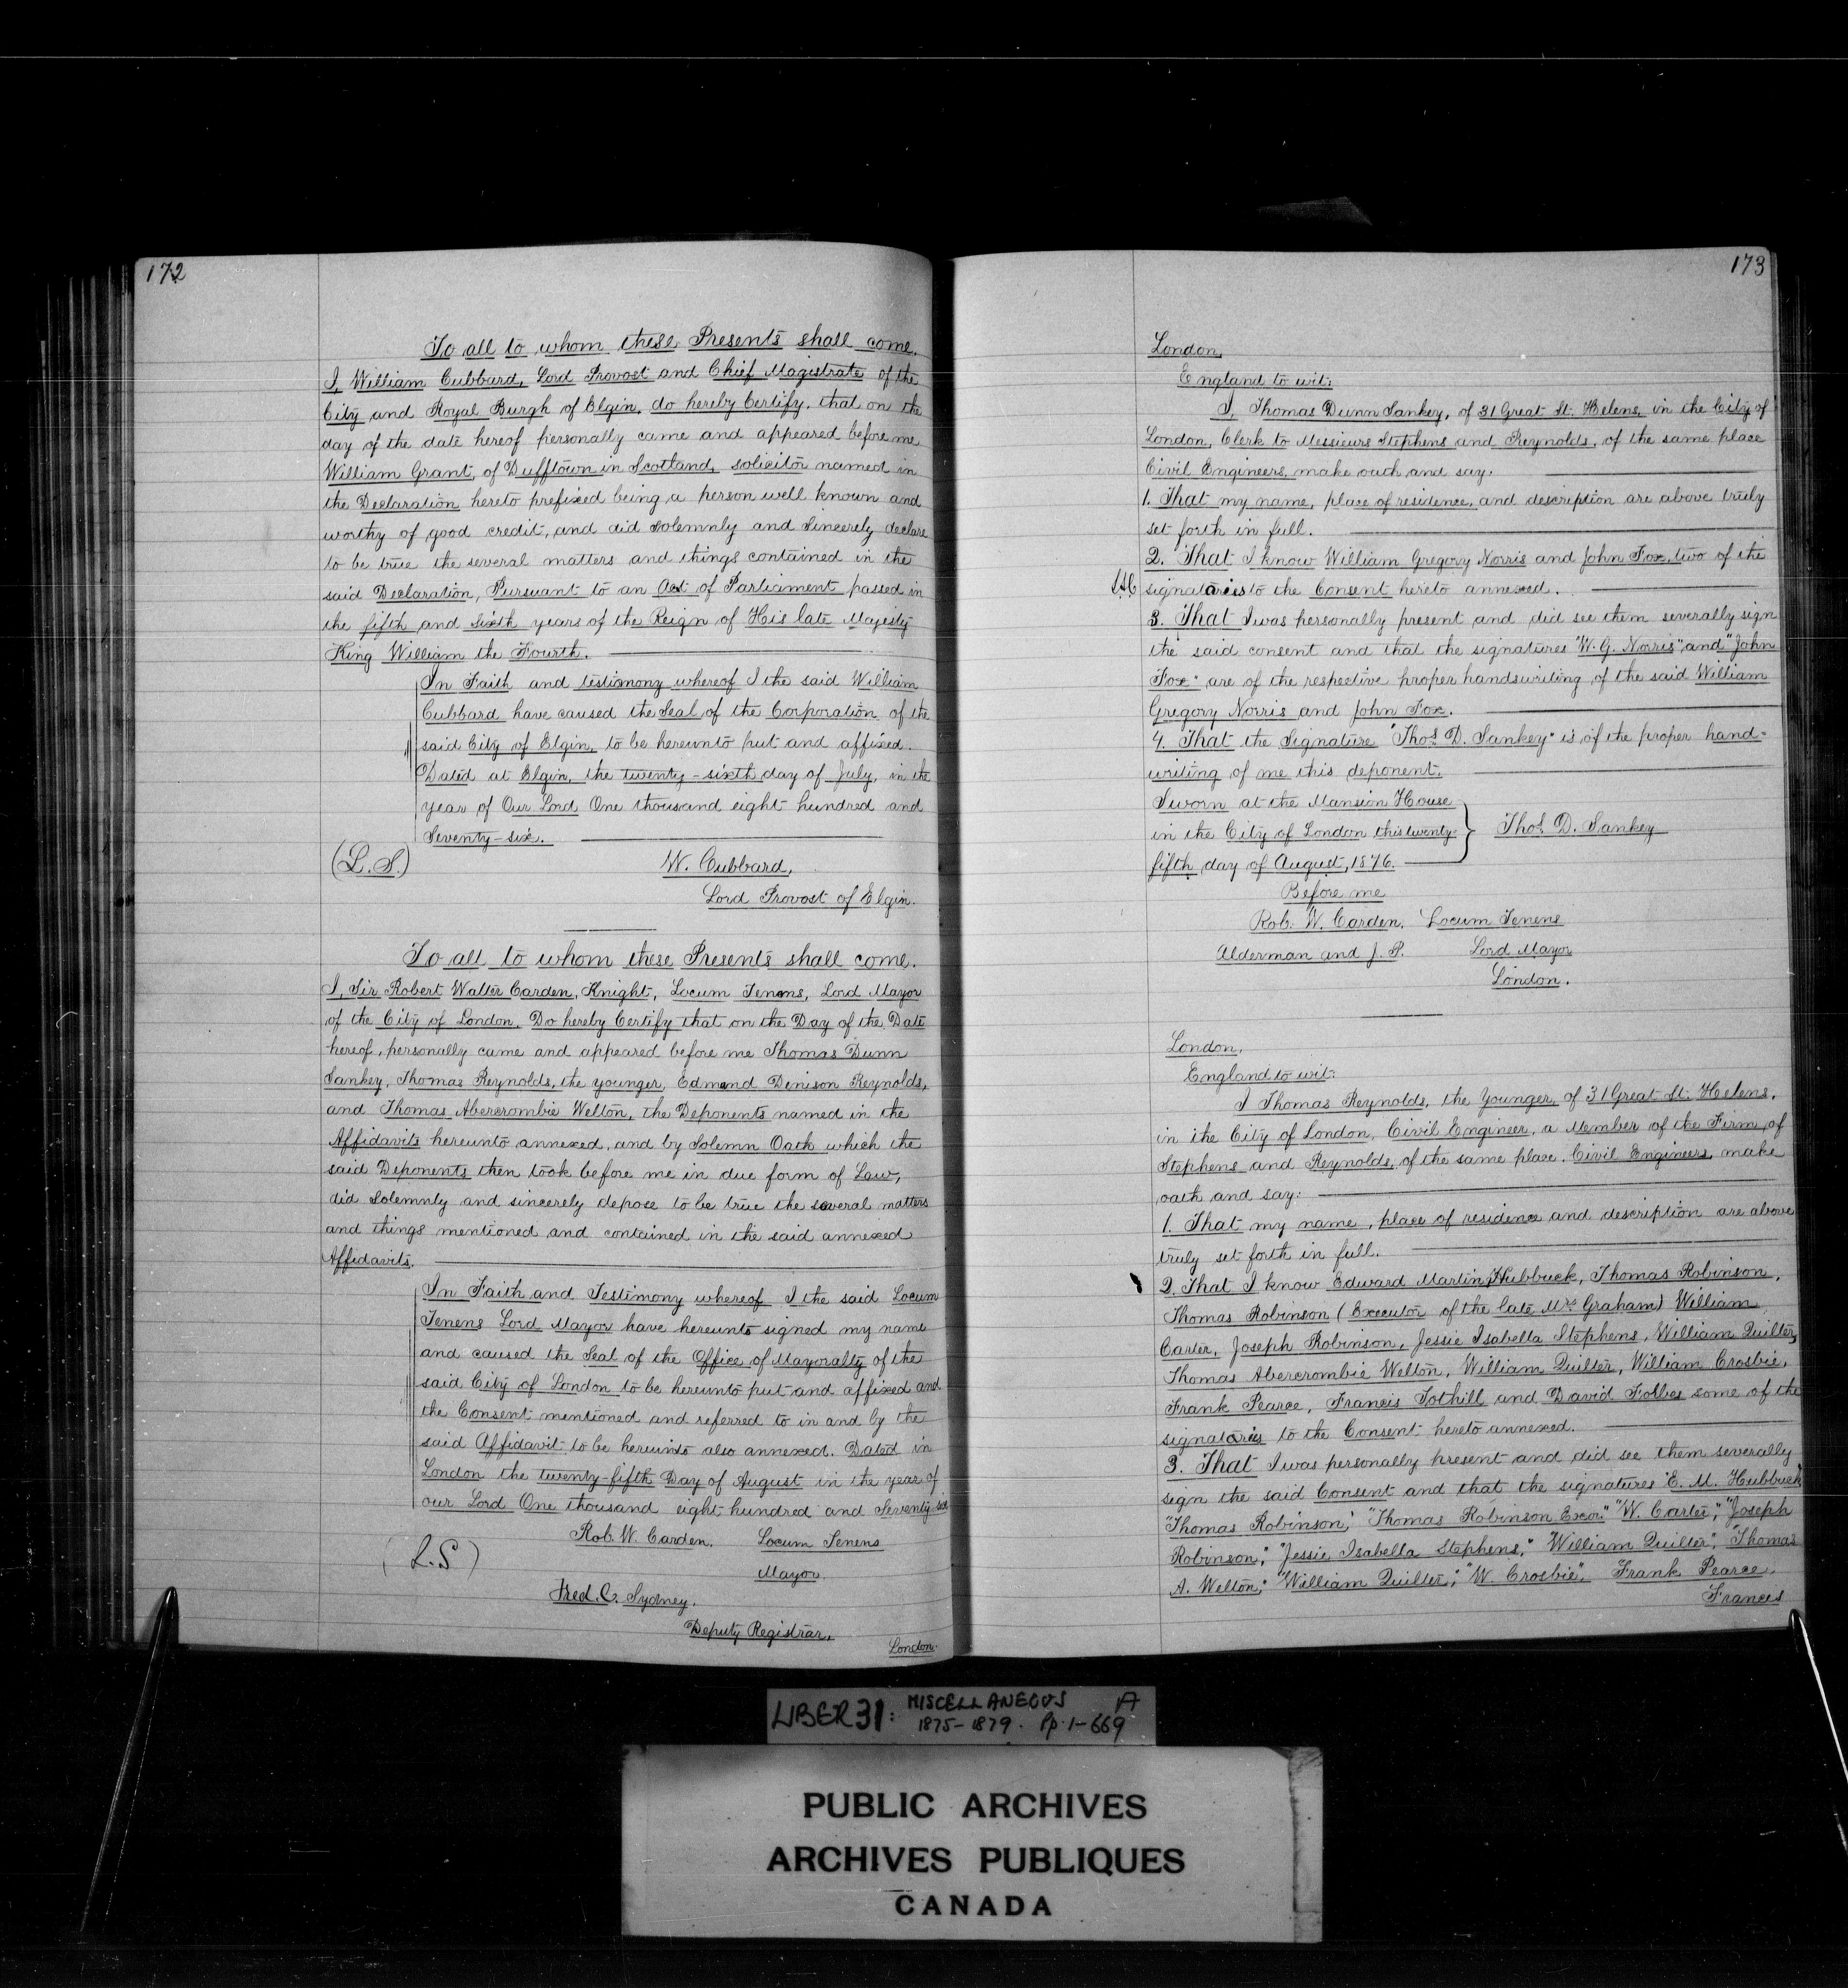 172
To all to whom these Presents shall come.
I, William Cubbard, Lord Provost and Chief Magistrate of the
City and Royal Burgh of Elgin, do hereby Certify, that on the
day of the date hereof personally came and appeared before me
William Grant, of Dufftown in Scotland, solicitor named in
the Declaration hereto prefixed being a person well known and
worthy of good credit, and did Solemnly and Sincerely declare
to be true the several matters and things contained in the
said Declaration, Pursuant to an Act of Parliament passed in
the fifth and Sixth years of the Reign of His late Majesty
King William the Fourth.
In Faith and testimony whereof I the said William
Cubbard have caused the Seal of the Corporation of the
said City of Elgin, to be hereunto put and affixed.
Dated at Elgin, the twenty-sixth day of July, in the
year of Our Lord One thousand eight hundred and
Seventy-six.
(L.S.)
W. Cubbard,
Lord Provost of Elgin.
To all to whom these Presents shall come.
I, Sir Robert Walter Carden, Knight, Locum Tenens, Lord Mayor
of the City of London, Do hereby Certify that on the Day of the Date
hereof, personally came and appeared before me Thomas Dunn
Sankey, Thomas Reynolds, the younger, Edmund Denison Reynolds,
and Thomas Abercrombie Welton, the Deponents named in the
Affidavits hereunto annexed, and by Solemn Oath which the
said Deponents then took before me in due form of Law,
did Solemnly and sincerely depose to be true the several matters
and things mentioned and contained in the said annexed
Affidavits.
In Faith and Testimony whereof I the said Locum
Tenens Lord Mayor have hereunto signed my name
and caused the Seal of the Office of Mayoralty of the
said City of London to be hereunto put and affixed and
the Consent mentioned and referred to in and by the
said Affidavit to be hereunto also annexed. Dated in
London the twenty-fifth Day of August in the year of
our Lord One thousand eight hundred and Seventy six
Rob. W. Carden. Locum Tenens
(L.S)
Mayor.
Fred. C. Sydney.
Deputy Registrar.
London.
173
London,
England to wit:
I, Thomas Dunn Sankey, of 31 Great St. Helens, in the City of
London, Clerk to Messieurs Stephens and Reynolds, of the same place
Civil Engineers, make oath and say.
1. That my name, place of residence, and description are above truly
set forth in full.
2. That I know William Gregory Norris and John Fox, two of the
signataries to the Consent hereto annexed.
3. That I was personally present and did see them severally sign
the said consent and that the signatures "W. G. Norris", and "John
Fox" are of the respective proper handswriting of the said William
Gregory Norris and John Fox.
4. That the Signature "Thos. D. Sankey" is of the proper hand=
writing of me this deponent.
Sworn at the Mansion House
in the City of London this twenty-
fifth day of August, 1876.
Thos. D. Sankey
Before me
Rob. W. Carden. Locum Tenens
Alderman and J. P. Lord Mayor
London.
London,
England to wit:
I Thomas Reynolds, the Younger, of 31 Great St. Helens,
in the City of London, Civil Engineer, a Member of the Firm of
Stephens and Reynolds, of the same place, Civil Engineers, make
oath and say:
1. That my name, place of residence and description are above
truly set forth in full.
2. That I know Edward Martin Hubbuck, Thomas Robinson,
Thomas Robinson (Executor of the late Mrs. Graham) William
Carter, Joseph Robinson, Jessie Isabella Stephens, William Quilter,
Thomas Abercrombie Welton, William Quilter, William Crosbie,
Frank Pearce, Francis Tothill and David Forbes some of the
signataries to the Consent hereto annexed.
3. That I was personally present and did see them severally
sign the said Consent and that the signatures "E. M. Hubbuck"
"Thomas Robinson," "Thomas Robinson Exor." "W. Carter", "Joseph
Robinson," "Jessie Isabella Stephens," "William Quilter", "Thomas
A. Welton," "William Quilter," "W. Crosbie", Frank Pearce,
Francis
LIBER 31: MISCELLANEOUS A
1875-1879. Pp. 1-669
PUBLIC ARCHIVES
ARCHIVES PUBLIQUES
CANADA